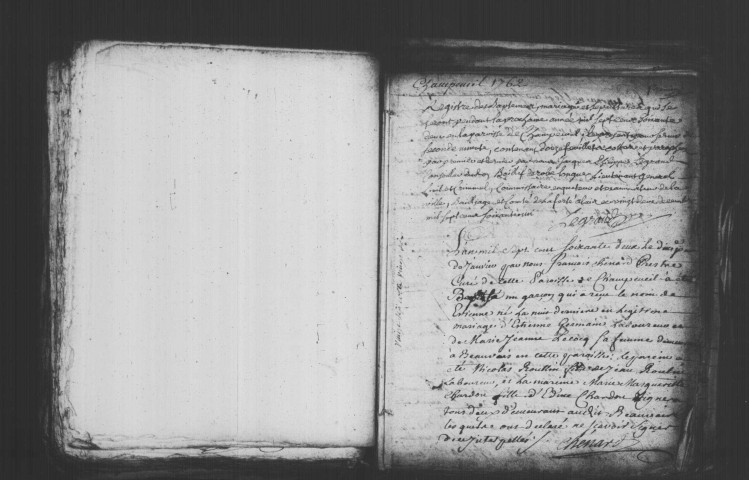 Champcueil 1762
Registre des Baptemes, mariages et sepultures qui se
feront pendant la prochaine année mil sept cent soixante
deux en la paroisse de Champcueil
seconde minute, contenant douze feuillets cottés et paraphés
par premier et dernier par nous Jacques Philippe Legrand
Conseiller du Roy Baillif de robe longue Lieutenant general
Civil et Criminel, Commissaire enqueteur et examinateur de la
ville, Bailliage et Comté de la ferté alais ce vingt deux
mil sept cent soixante un
Legrand
L'an mil sept cent soixante deux le
de Janvier par nous francois Chenard Prestre
Curé de cette Paroisse de Champcueil a été
Baptisé un garçon qui a reçu le nom de
Etienne né La nuit derniere en Legitime
mariage d'Etienne Germain Ladoureux et
de Marie Jeanne Lecocq sa femme
a Beauvais en cette paroisse: le parein a
été Nicolas Roullin fils de Jean Roullin
Laboureur, et La mareine Marie Marguerite
Chardon fille d'Edme Chardon Vigneron
tous deux demeurant audit Beauvais
lesquels ont declaré ne sçavoir signer
de ce interpellés
Chenard